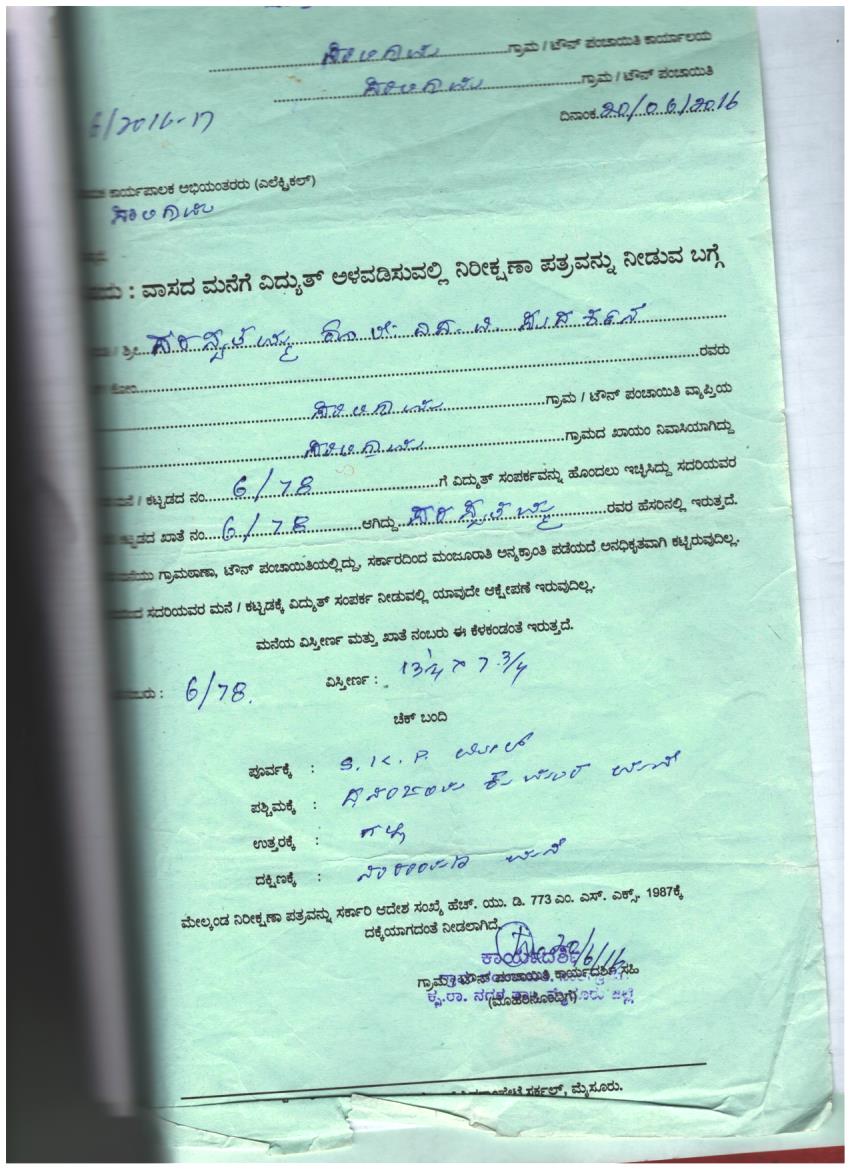 ಸಾಲಿಗ್ರಾಮ ಗ್ರಾಮ / ಟೌನ್ ಪಂಚಾಯಿತಿ ಕಾರ್ಯಾಲಯ
ಸಾಲಿಗ್ರಾಮ ಗ್ರಾಮ / ಟೌನ್ ಪಂಚಾಯಿತಿ
6/2016-17
ದಿನಾಂಕ 20/06/2016
ಕಾರ್ಯಪಾಲಕ ಅಭಿಯಂತರರು (ಎಲೆಕ್ಟ್ರಿಕಲ್)
ಸಾಲಿಗ್ರಾಮ
: ವಾಸದ ಮನೆಗೆ ವಿದ್ಯುತ್ ಅಳವಡಿಸುವಲ್ಲಿ ನಿರೀಕ್ಷಣಾ ಪತ್ರವನ್ನು ನೀಡುವ ಬಗ್ಗೆ
/ ಶ್ರೀ
ಕೋಂ ರವರು
ಸಾಲಿಗ್ರಾಮ ಗ್ರಾಮ / ಟೌನ್ ಪಂಚಾಯಿತಿ ವ್ಯಾಪ್ತಿಯ
ಸಾಲಿಗ್ರಾಮ ಗ್ರಾಮದ ಖಾಯಂ ನಿವಾಸಿಯಾಗಿದ್ದು
/ ಕಟ್ಟಡದ ನಂ. 6/78 ಗೆ ವಿದ್ಯುತ್ ಸಂಪರ್ಕವನ್ನು ಹೊಂದಲು ಇಚ್ಛಿಸಿದ್ದು ಸದರಿಯವರ
ಕಟ್ಟಡದ ಖಾತೆ ನಂ. 6/78 ಆಗಿದ್ದು ರವರ ಹೆಸರಿನಲ್ಲಿ ಇರುತ್ತದೆ.
ಗ್ರಾಮಠಾಣಾ, ಟೌನ್ ಪಂಚಾಯಿತಿಯಲ್ಲಿದ್ದು, ಸರ್ಕಾರದಿಂದ ಮಂಜೂರಾತಿ ಅನ್ಯಕ್ರಾಂತಿ ಪಡೆಯದೆ ಅನಧಿಕೃತವಾಗಿ ಕಟ್ಟಿರುವುದಿಲ್ಲ.
ಸದರಿಯವರ ಮನೆ / ಕಟ್ಟಡಕ್ಕೆ ವಿದ್ಯುತ್ ಸಂಪರ್ಕ ನೀಡುವಲ್ಲಿ ಯಾವುದೇ ಆಕ್ಷೇಪಣೆ ಇರುವುದಿಲ್ಲ.
ಮನೆಯ ವಿಸ್ತೀರ್ಣ ಮತ್ತು ಖಾತೆ ನಂಬರು ಈ ಕೆಳಕಂಡಂತೆ ಇರುತ್ತದೆ.
: 6/78. ವಿಸ್ತೀರ್ಣ : 13 1/4 × 7 3/4
ಚೆಕ್ ಬಂದಿ
ಪೂರ್ವಕ್ಕೆ : S.K.P.
ಪಶ್ಚಿಮಕ್ಕೆ : ಮನೆ
ಉತ್ತರಕ್ಕೆ : ಗಲ್ಲಿ
ದಕ್ಷಿಣಕ್ಕೆ : ಮನೆ
ಮೇಲ್ಕಂಡ ನಿರೀಕ್ಷಣಾ ಪತ್ರವನ್ನು ಸರ್ಕಾರಿ ಆದೇಶ ಸಂಖ್ಯೆ ಹೆಚ್. ಯು. ಡಿ. 773 ಎಂ. ಎಸ್. ಎಕ್ಸ್. 1987ಕ್ಕೆ
ದಕ್ಕೆಯಾಗದಂತೆ ನೀಡಲಾಗಿದೆ.
20/6/16
ಕಾರ್ಯದರ್ಶಿ
ಗ್ರಾಮ / ಟೌನ್ ಪಂಚಾಯಿತಿ ಕಾರ್ಯದರ್ಶಿ ಸಹಿ
(ಮೊಹರಿನೊಂದಿಗೆ)
ಸರ್ಕಲ್, ಮೈಸೂರು.